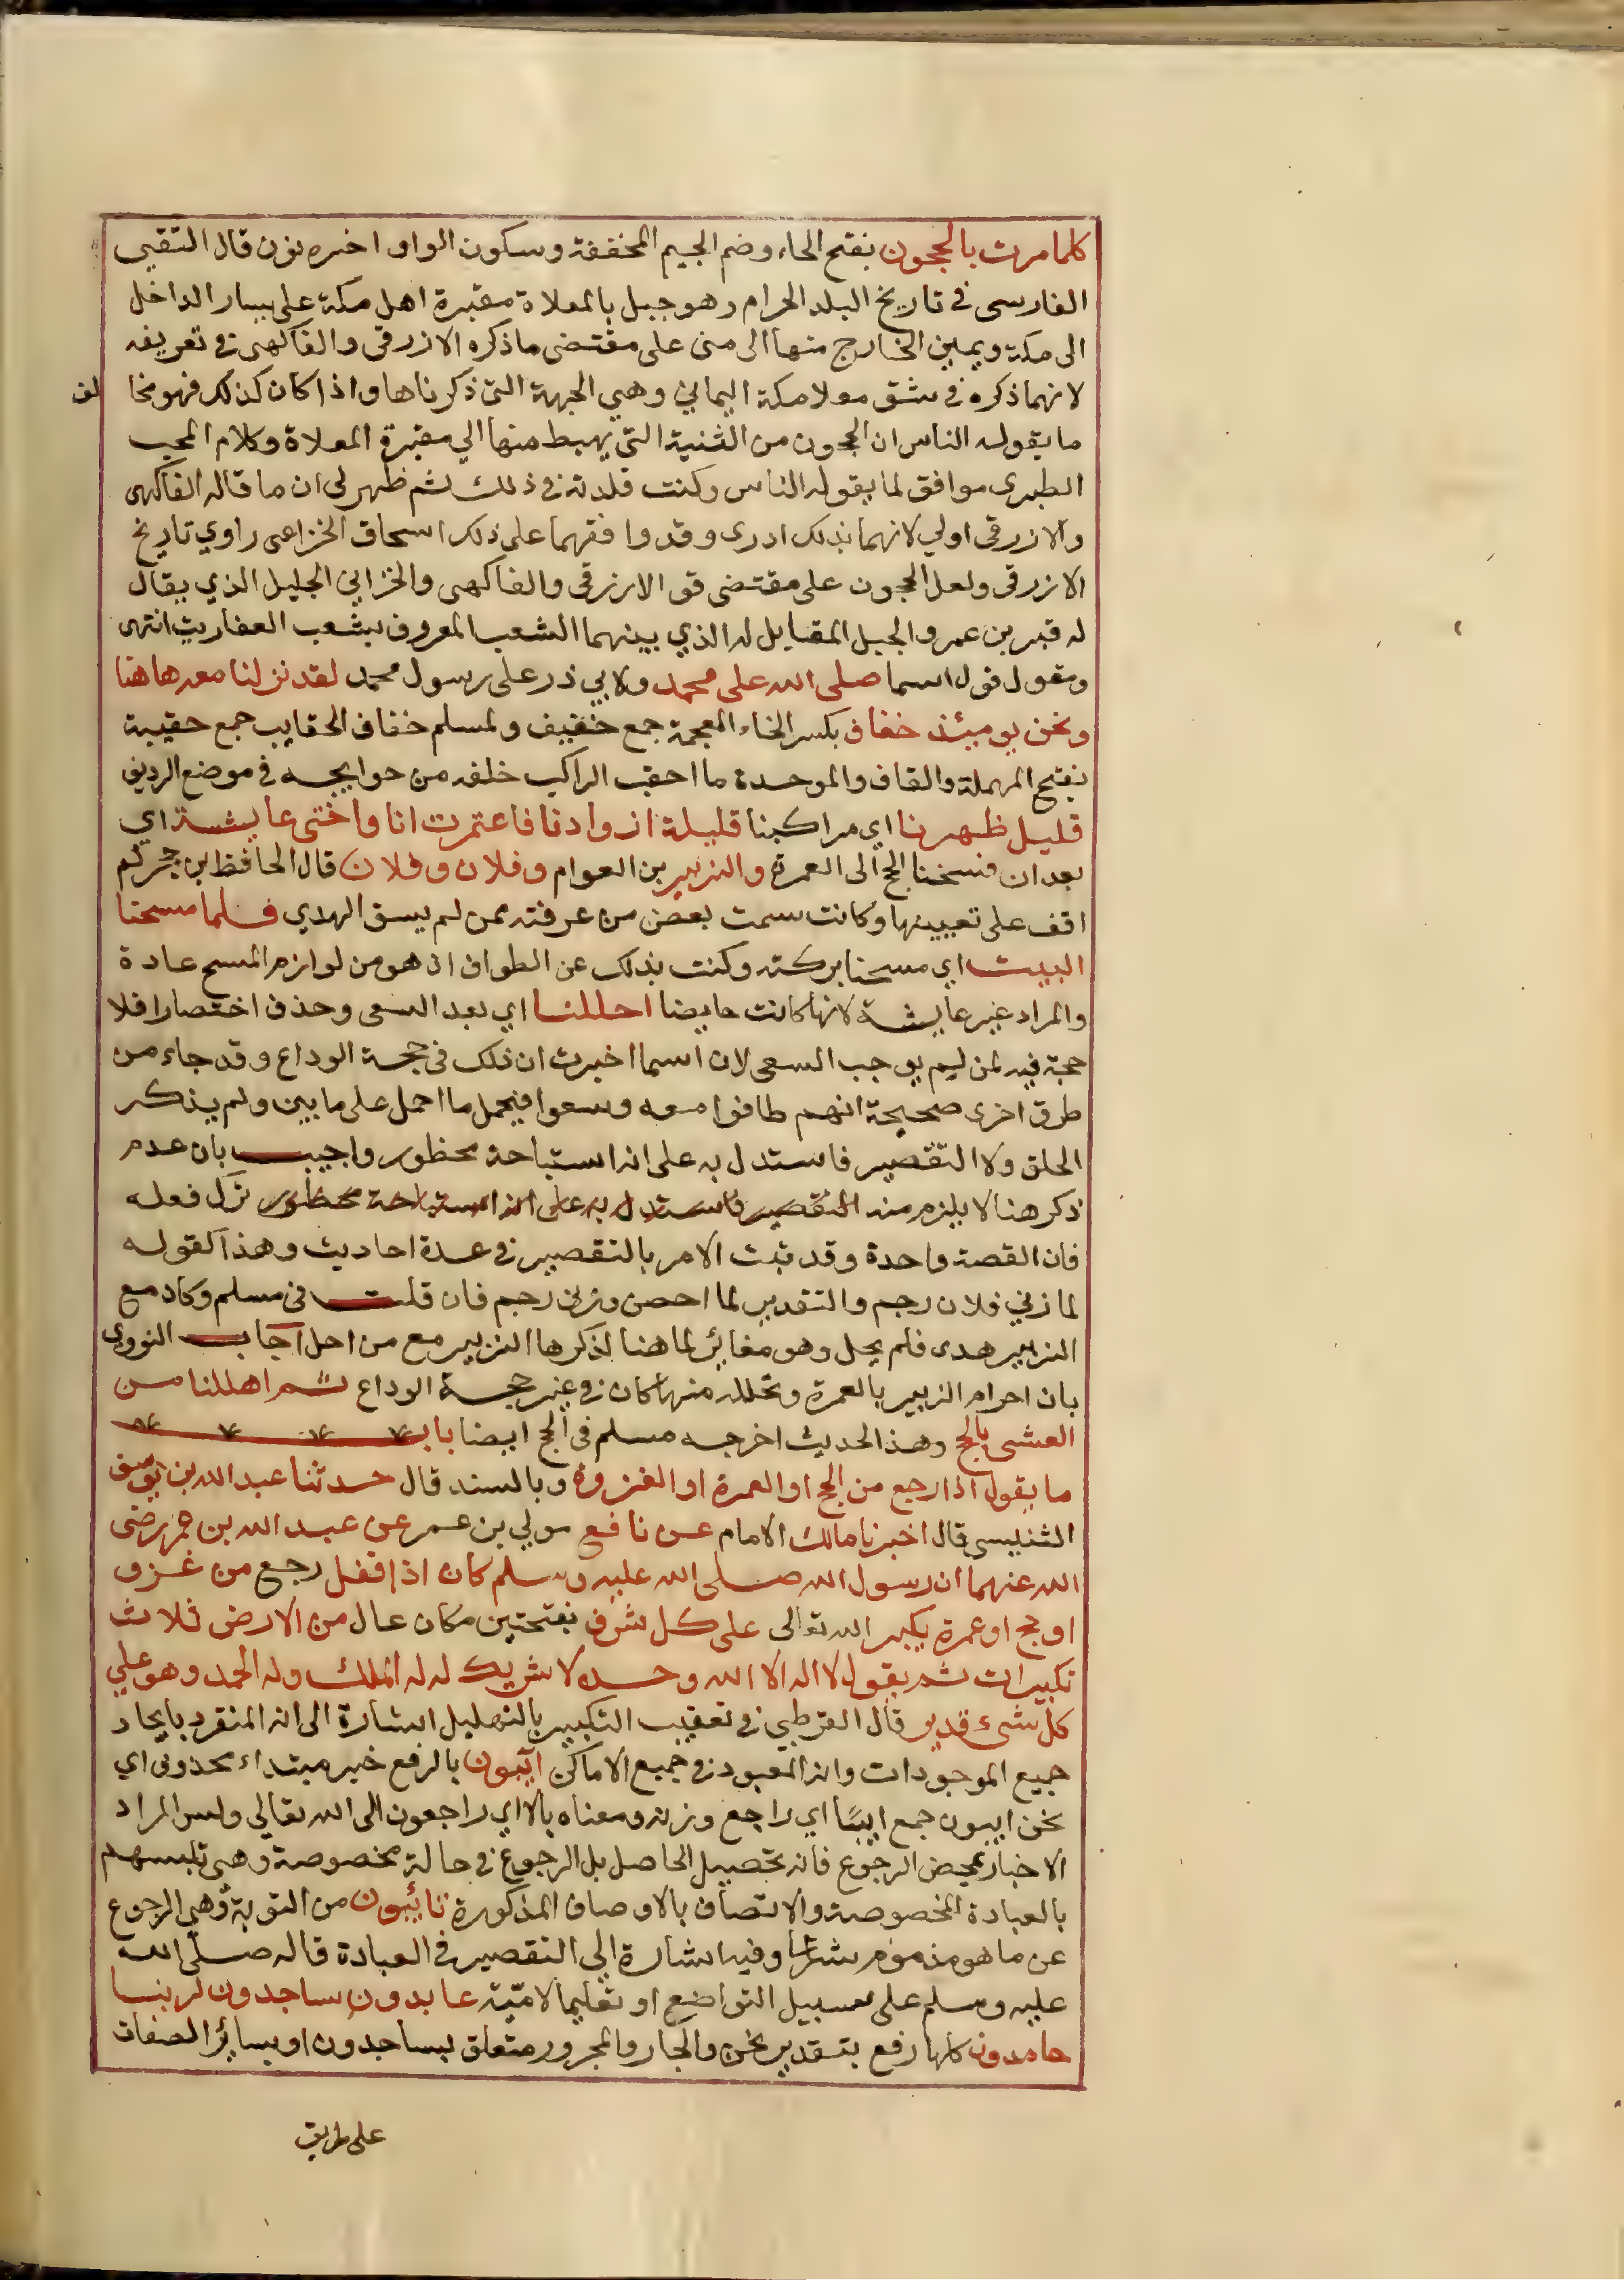 كلما مرت بالحجون بفتح الحاء وضم الجيم المخففة وسكون الواو اخره نون قال التقي
الفارسي في تاريخ البلد الحرام وهو جبل بالمعلاة مقبرة اهل مكة على يسار الداخل
الى مكة ويمين الخارج منها الى منى على مقتضى ما ذكره الازرقي والفاكهي في تعريفه
لانهما ذكره في شق معلا مكة اليماني وهي الجهة التي ذكرناها واذا كان كذلك فهو مخا لف
ما يقوله الناس ان الحجون من الثنية التي يهبط منها الي مقبرة المعلاة وكلام المحب
الطبري موافق لما يقوله الناس وكنت قلدته في ذلك ثم ظهر لي ان ما قاله الفاكهي
والازرقي اولي لانهما بذلك ادرى وقد وافقهما على ذلك اسحاق الخزاعي راوي تاريخ
الازرقي ولعل الحجون على مقتضى قو الارزقي والفاكهي والخزاني الجليل الذي يقال
له قبر بن عمر والجبل المقابل له الذي بينهما الشعب المعروف بشعب العفاريت انتهى
ومقول قول اسما صلى الله على محمد ولابي ذر على رسول محمد لقد نزلنا معه هاهنا
ونحن يومئذ خفاف بكسر الخاء المعجمة جمع خفيف ولمسلم خفاف الحقايب جمع حقيبة
بفتح المهملة والقاف والموحدة ما احقب الراكب خلفه من حوايجه في موضع الرديف
قليل ظهرنا اي مراكبنا قليلة ازوادنا فاعتمرت انا واختى عايشة اي
بعد ان فسخنا الحج الى العمرة والزبير بن العوام وفلان وفلان قال الحافظ بن حجر لم
اقف على تعيينها وكانت سمت بعض من عرفته ممن لم يسق الهدي فلما مسحنا
البيت اي مسحنا بركته وكنت بذلك عن الطواف اذ هو من لوازم المسح عادة
والمراد غير عايشة لانها كانت حايضا احللنا اي بعد السعى وحذف اختصارا فلا
حجة فيه لمن ليم يوجب السعى لان اسما اخبرت ان ذلك في حجة الوداع وقد جاء من
طرق اخرى صحيحة انهم طافوا معه وسعوا فيحمل ما احمل على ما بين ولم يذكر
الحلق ولا التقصير فاستدل به على انه استباحة محظور واجيب بان عدم
ذكر هنا لا يلزم منه التقصير فاستدل به على انه استباحة محظور ترك فعله
فان القصة واحدة وقد ثبت الامر بالتقصير في عدة احاديث وهذا كقوله
لما زني فلان رجم والتقدير لما احصن وزنى رجم فان قلت في مسلم وكاد مع
الزبير هدى فلم يحل وهو مغائر لما هنا لذكرها الزبير مع من احل اجاب النووي
بان احرام الزبير بالعمرة وتحلله منها كان في غير حجة الوداع ثم اهللنا من
العشي بالحج وهذا الحديث اخرجه مسلم في الحج ايضا باب
ما يقول اذا رجع من الحج او العمرة او الغزوة وبالسند قال حدثنا عبد الله بن يوسف
التنيسي قال اخبرنا مالك الامام عن نافع مولي بن عمر عن عبد الله بن عمر رضى
الله عنهما ان رسول الله صلى الله عليه وسلم كان اذا قفل رجع من غزو
او حج او عمرة يكبر الله تعالى على كل شرف بفتحتين مكان عال من الارض ثلاث
تكبيرات ثم يقول لا اله الا الله وحده لا شريك له له الملك وله الحمد وهو علي
كل شىء قدير قال القرطبي في تعقيب التكبير بالتهليل اشارة الى انه المنفرد بايجاد
جميع الموجودات وانه المعبود في جميع الاماكن آيبون بالرفع خبر مبتداء محذوف اي
نحن ايبون جمع ايبا اي راجع وزنه ومعناه بالا اي راجعون الى الله تعالي وليس المراد
الاخبار بمحض الرجوع فانه تحصيل الحاصل بل الرجوع في حالة مخصوصة وهي تلبسهم
بالعبادة المخصوصة والاتصاف بالاوصاف المذكورة تائبون من التوبة وهي الرجوع
عن ما هو مذموم شرعا وفيه اشارة الي التقصير في العبادة قاله صلى الله
عليه وسلم على سبيل التواضع او تعليما لامّته عابدون ساجدون لربنا
حامدون كلها رفع بتقدير نحن والجار والمجرور متعلق بساجدون او بسائر الصفات
على طريق